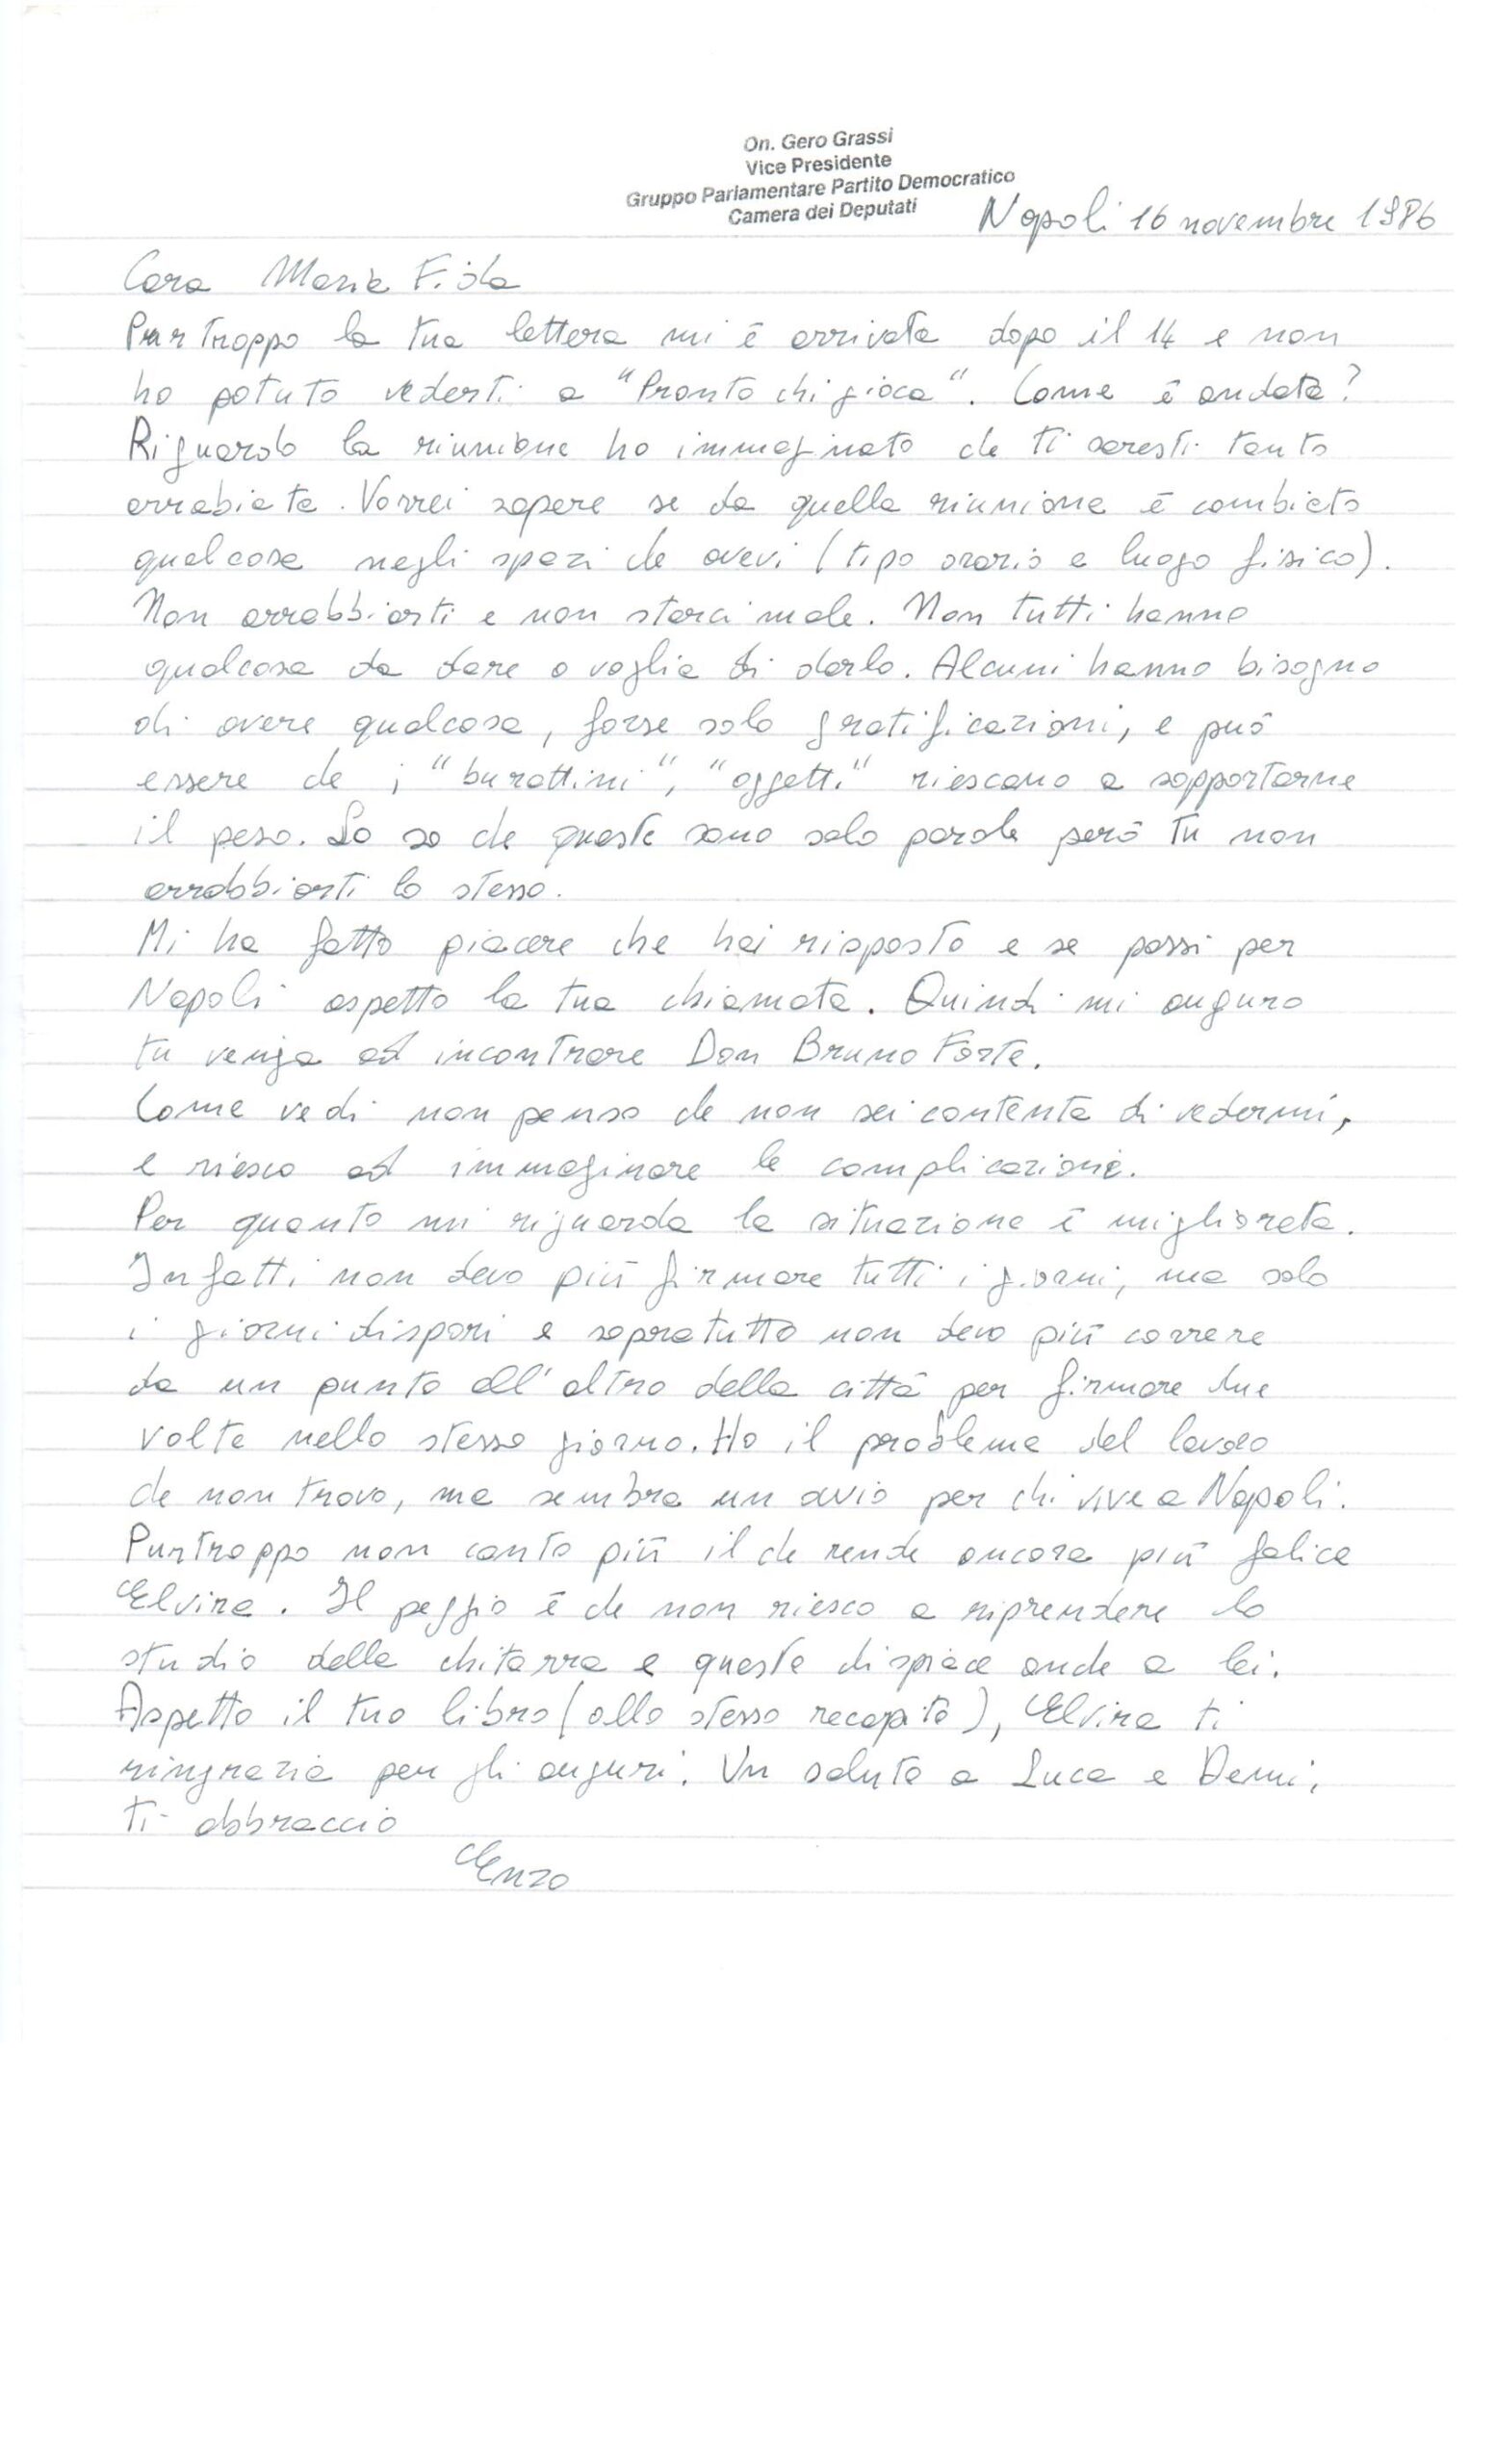 On. Gero Grassi
Vice Presidente
Gruppo Parlamentare Partito Democratico
Camera dei Deputati
Napoli 16 novembre 1986
Cara Maria Fida
Purtroppo la tua lettera mi è arrivata dopo il 14 e non
ho potuto vederti a "Pronto chi gioca". Come è andata?
Riguardo la riunione ho immaginato che ti saresti tanto
arrabiata. Vorrei sapere se da quella riunione è cambiato
qualcosa negli spazi che avevi (tipo orario e luogo fisico).
Non arrabbiarti e non starci male. Non tutti hanno
qualcosa da dare o voglia di darlo. Alcuni hanno bisogno
di avere qualcosa, forse solo gratificazioni, e può
essere che i "burattini", "oggetti" riescano a sopportarne
il peso. Lo so che queste sono solo parole però tu non
arrabbiarti lo stesso.
Mi ha fatto piacere che hai risposto e se passi per
Napoli aspetto la tua chiamata. Quindi mi auguro
tu venga ad incontrare Don Bruno Forte.
Come vedi non penso che non sei contenta di vedermi,
e riesco ad immaginare le complicazioni.
Per quanto mi riguarda la situazione è migliorata.
Infatti non devo più firmare tutti i giorni, ma solo
i giorni dispari e sopratutto non devo più correre
da un punto all'altro della città per firmare due
volte nello stesso giorno. Ho il problema del lavoro
che non trovo, ma sembra un ovvio per chi vive a Napoli.
Purtroppo non canto più il che rende ancora più felice
Elvira. Il peggio è che non riesco a riprendere lo
studio della chitarra e queste dispiace anche a lei.
Aspetto il tuo libro (allo stesso recapito), Elvira ti
ringrazia per gli auguri. Un saluto a Luca e Demi,
ti abbraccio
Enzo